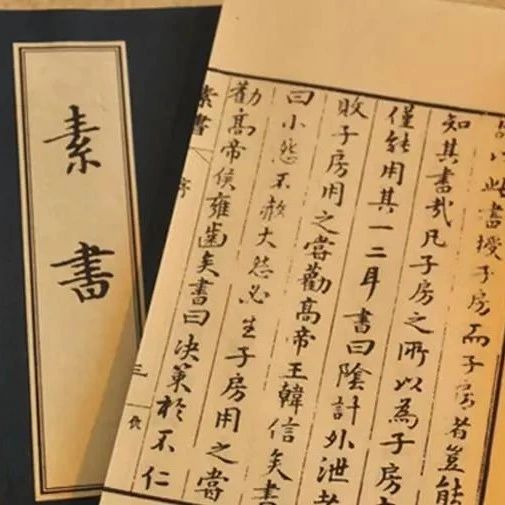 素書
此書授子房而子房者豈能
知其書哉凡子房之所以為子房
僅能用其一二耳書曰陰計外泄
敗子房用之嘗勸高帝王韓信矣書
曰小怨不赦大怨必生子房用之嘗
勸高帝侯雍齒矣書曰決策於不仁
素書 序 三